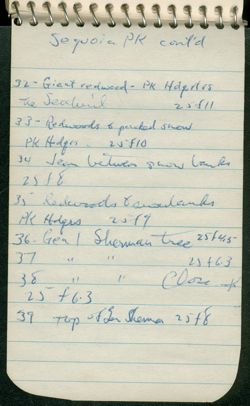 Sequoia PK cont'd
32 - Giant redwood - PK Hdqrtrs
The Sentinel 25 f11
33 - Redwoods & packed snow
PK Hdqrs. 25 f10
34 between snow banks
25 f8
35 Redwoods & snowbanks
PK Hdqrs 25 f9
36 - Gen'l Sherman tree 25 f4.5
37 " " 25 f6.3
38 " " Close up
25 f6.3
39 Top of Gen Sherman 25 f8